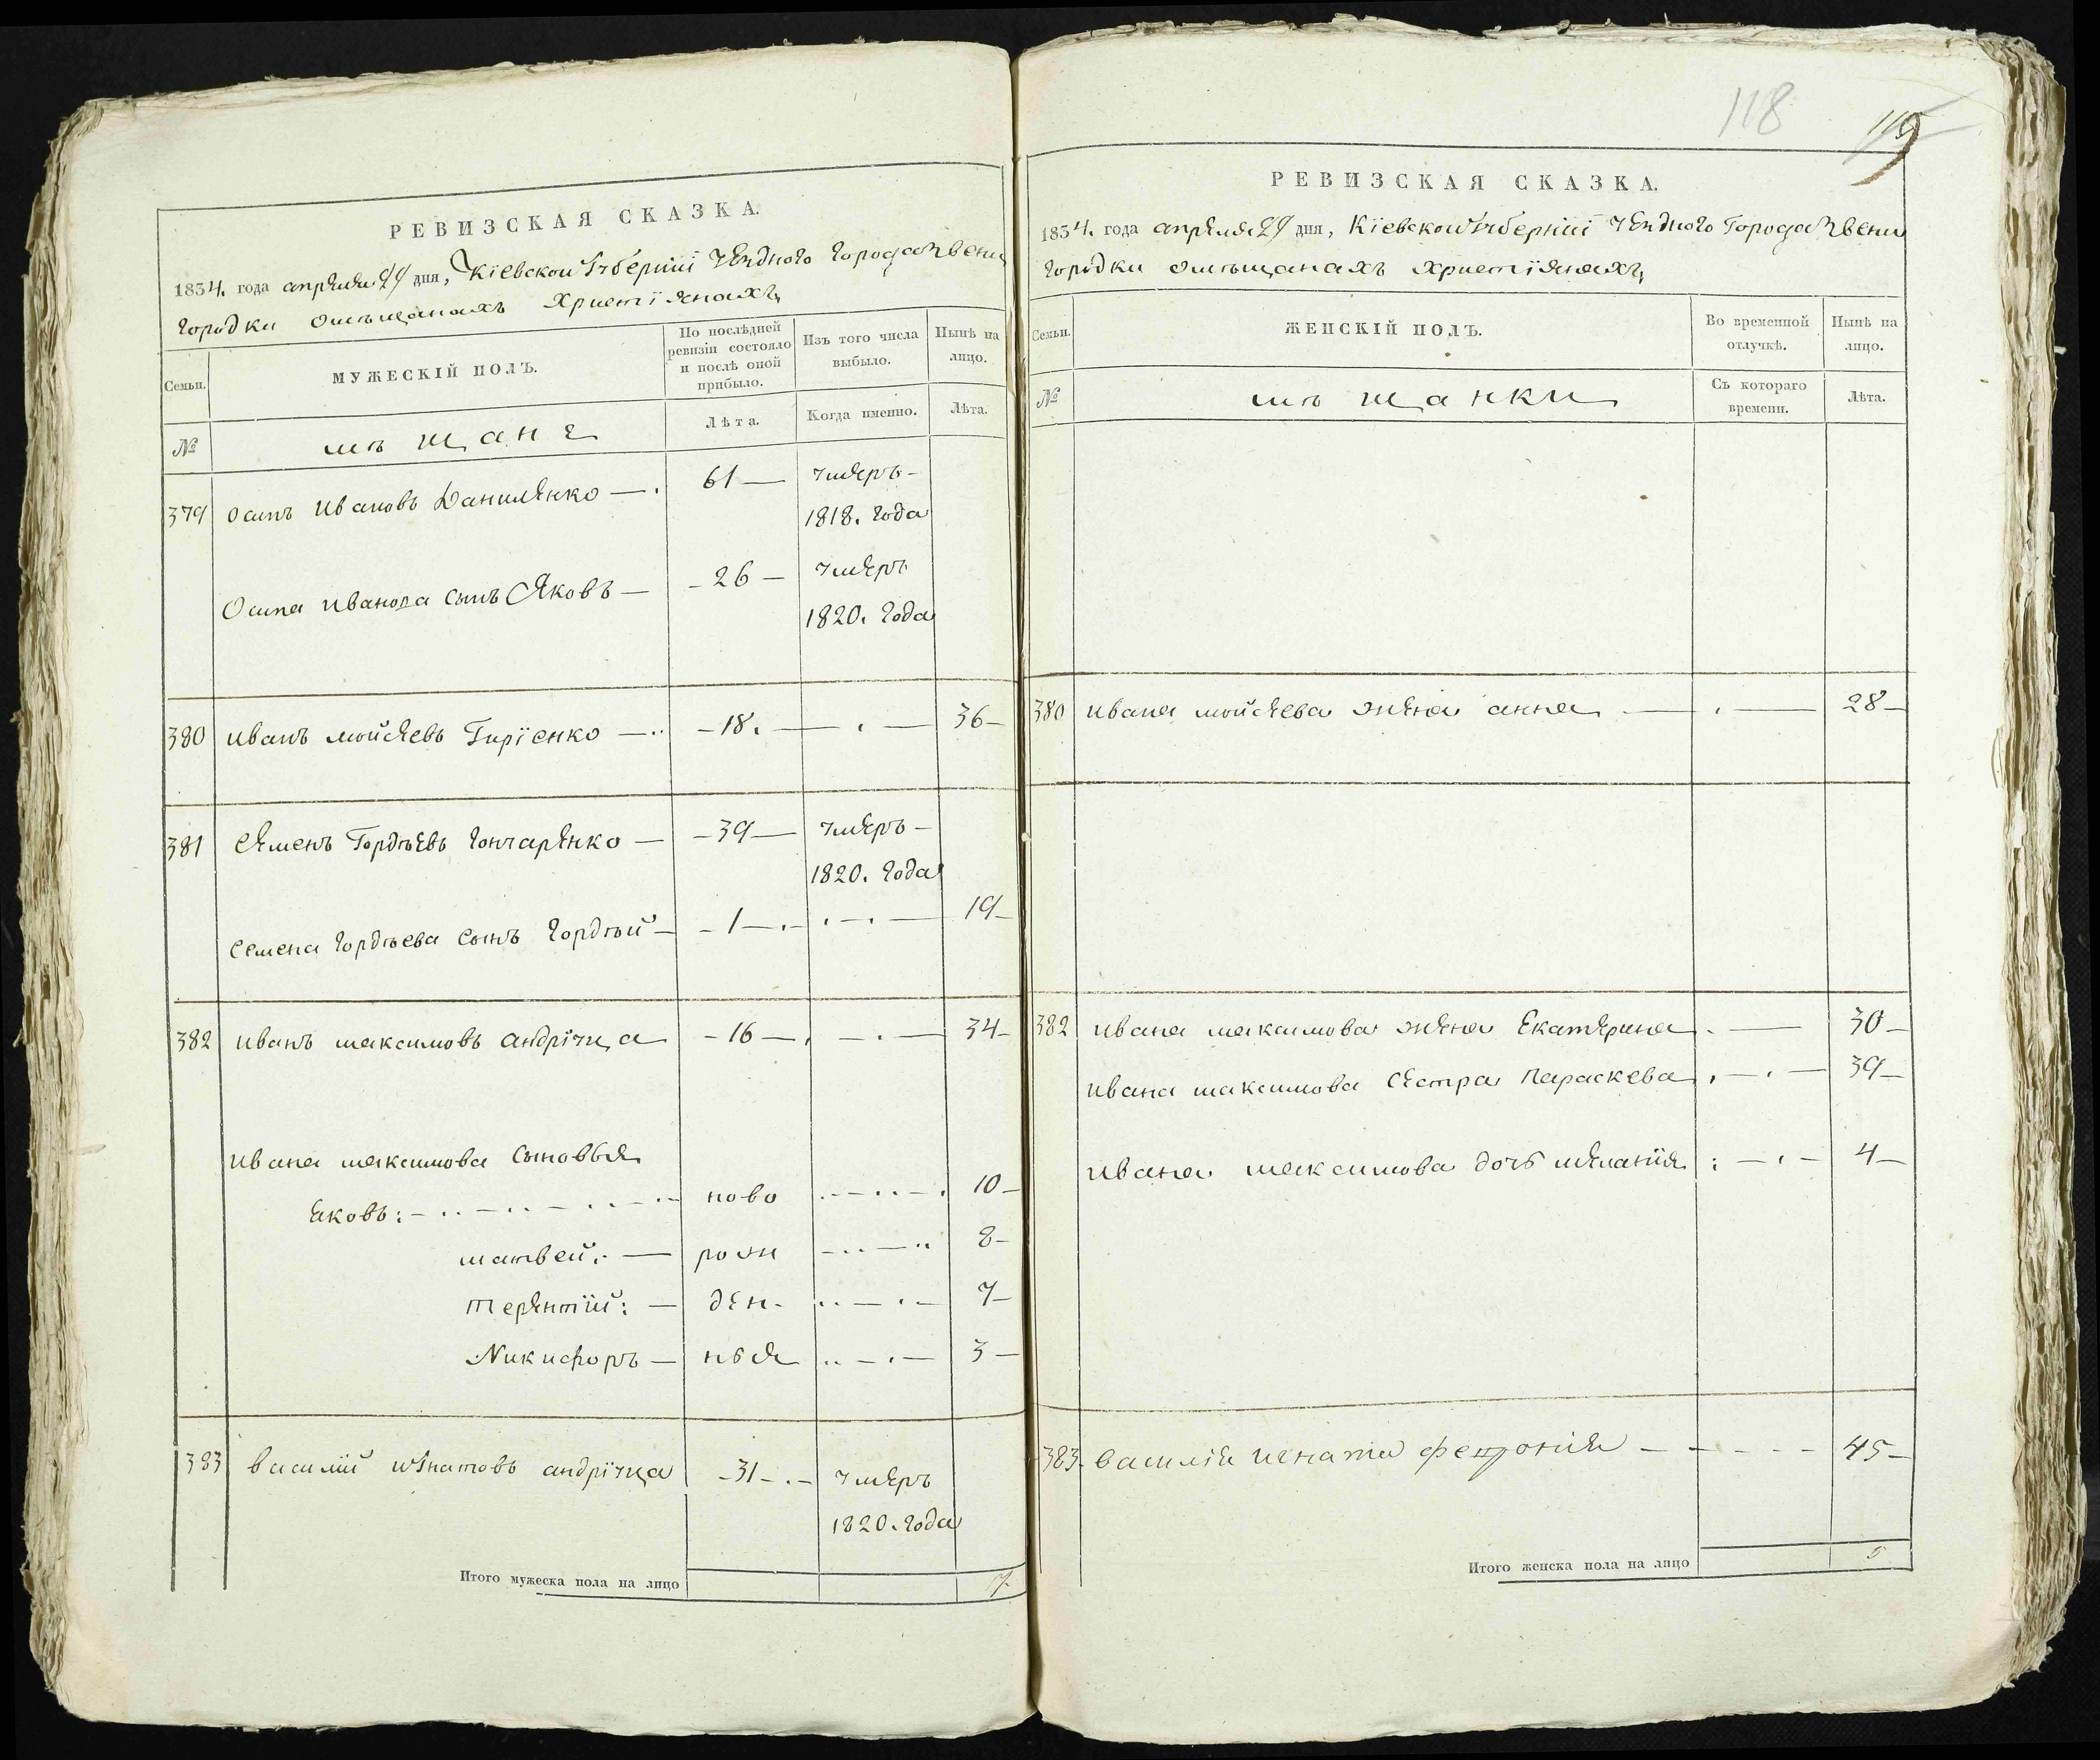 РЕВИЗСКАЯ СКАЗКА.
1834. года апреля 29 дня, Кіевской Губерніи уездного города Звени
городки омѣщанахъ христіянахъ,
Семьи.
МУЖЕСКІЙ ПОЛЪ.
По послѣдней ревизіи состояло и послѣ оной прибыло.
Изъ того числа выбыло.
Нынѣ на лицо.
№
мѣщане
Лѣта.
Когда именно.
Лѣта.
379 осипъ Ивановъ Даниленко — 61 — умеръ —
1818. года
Осипа иванова сынъ Яковъ — 26 — умеръ
1820. года
380 иванъ мойсеевъ Гиріенко — 18. — 36
381 семенъ Гордѣевъ гончаренко — 39 — умеръ —
1820. года
семена гордѣева сынъ гордѣй — 1 — 19
382 иванъ максимовъ андріуца — 16 — 34
ивана максимова сыновья
яковъ: ново 10
матвей: — рож 8
терентій: — ден- 7
Никифоръ — нья 3
383 василій игнатовъ андріуца — 31 — умеръ
1820. года
Итого мужеска пола на лицо 7
118
119
РЕВИЗСКАЯ СКАЗКА.
1834. года апреля 29 дня, Кіевской Губерніи уездного города Звени
городки омѣщанахъ христіянахъ,
Семьи.
ЖЕНСКІЙ ПОЛЪ.
Во временной отлучкѣ.
Нынѣ на лицо.
№
мѣщанки
Съ котораго времени.
Лѣта.
380 ивана мойсеева жена анна — 28
382 ивана максимова жена Екатерина — 30
ивана максимова сестра Параскева — 39
ивана максимова дочь меланія — 4
383 василія игнатіа — 45
Итого женска пола на лицо 5